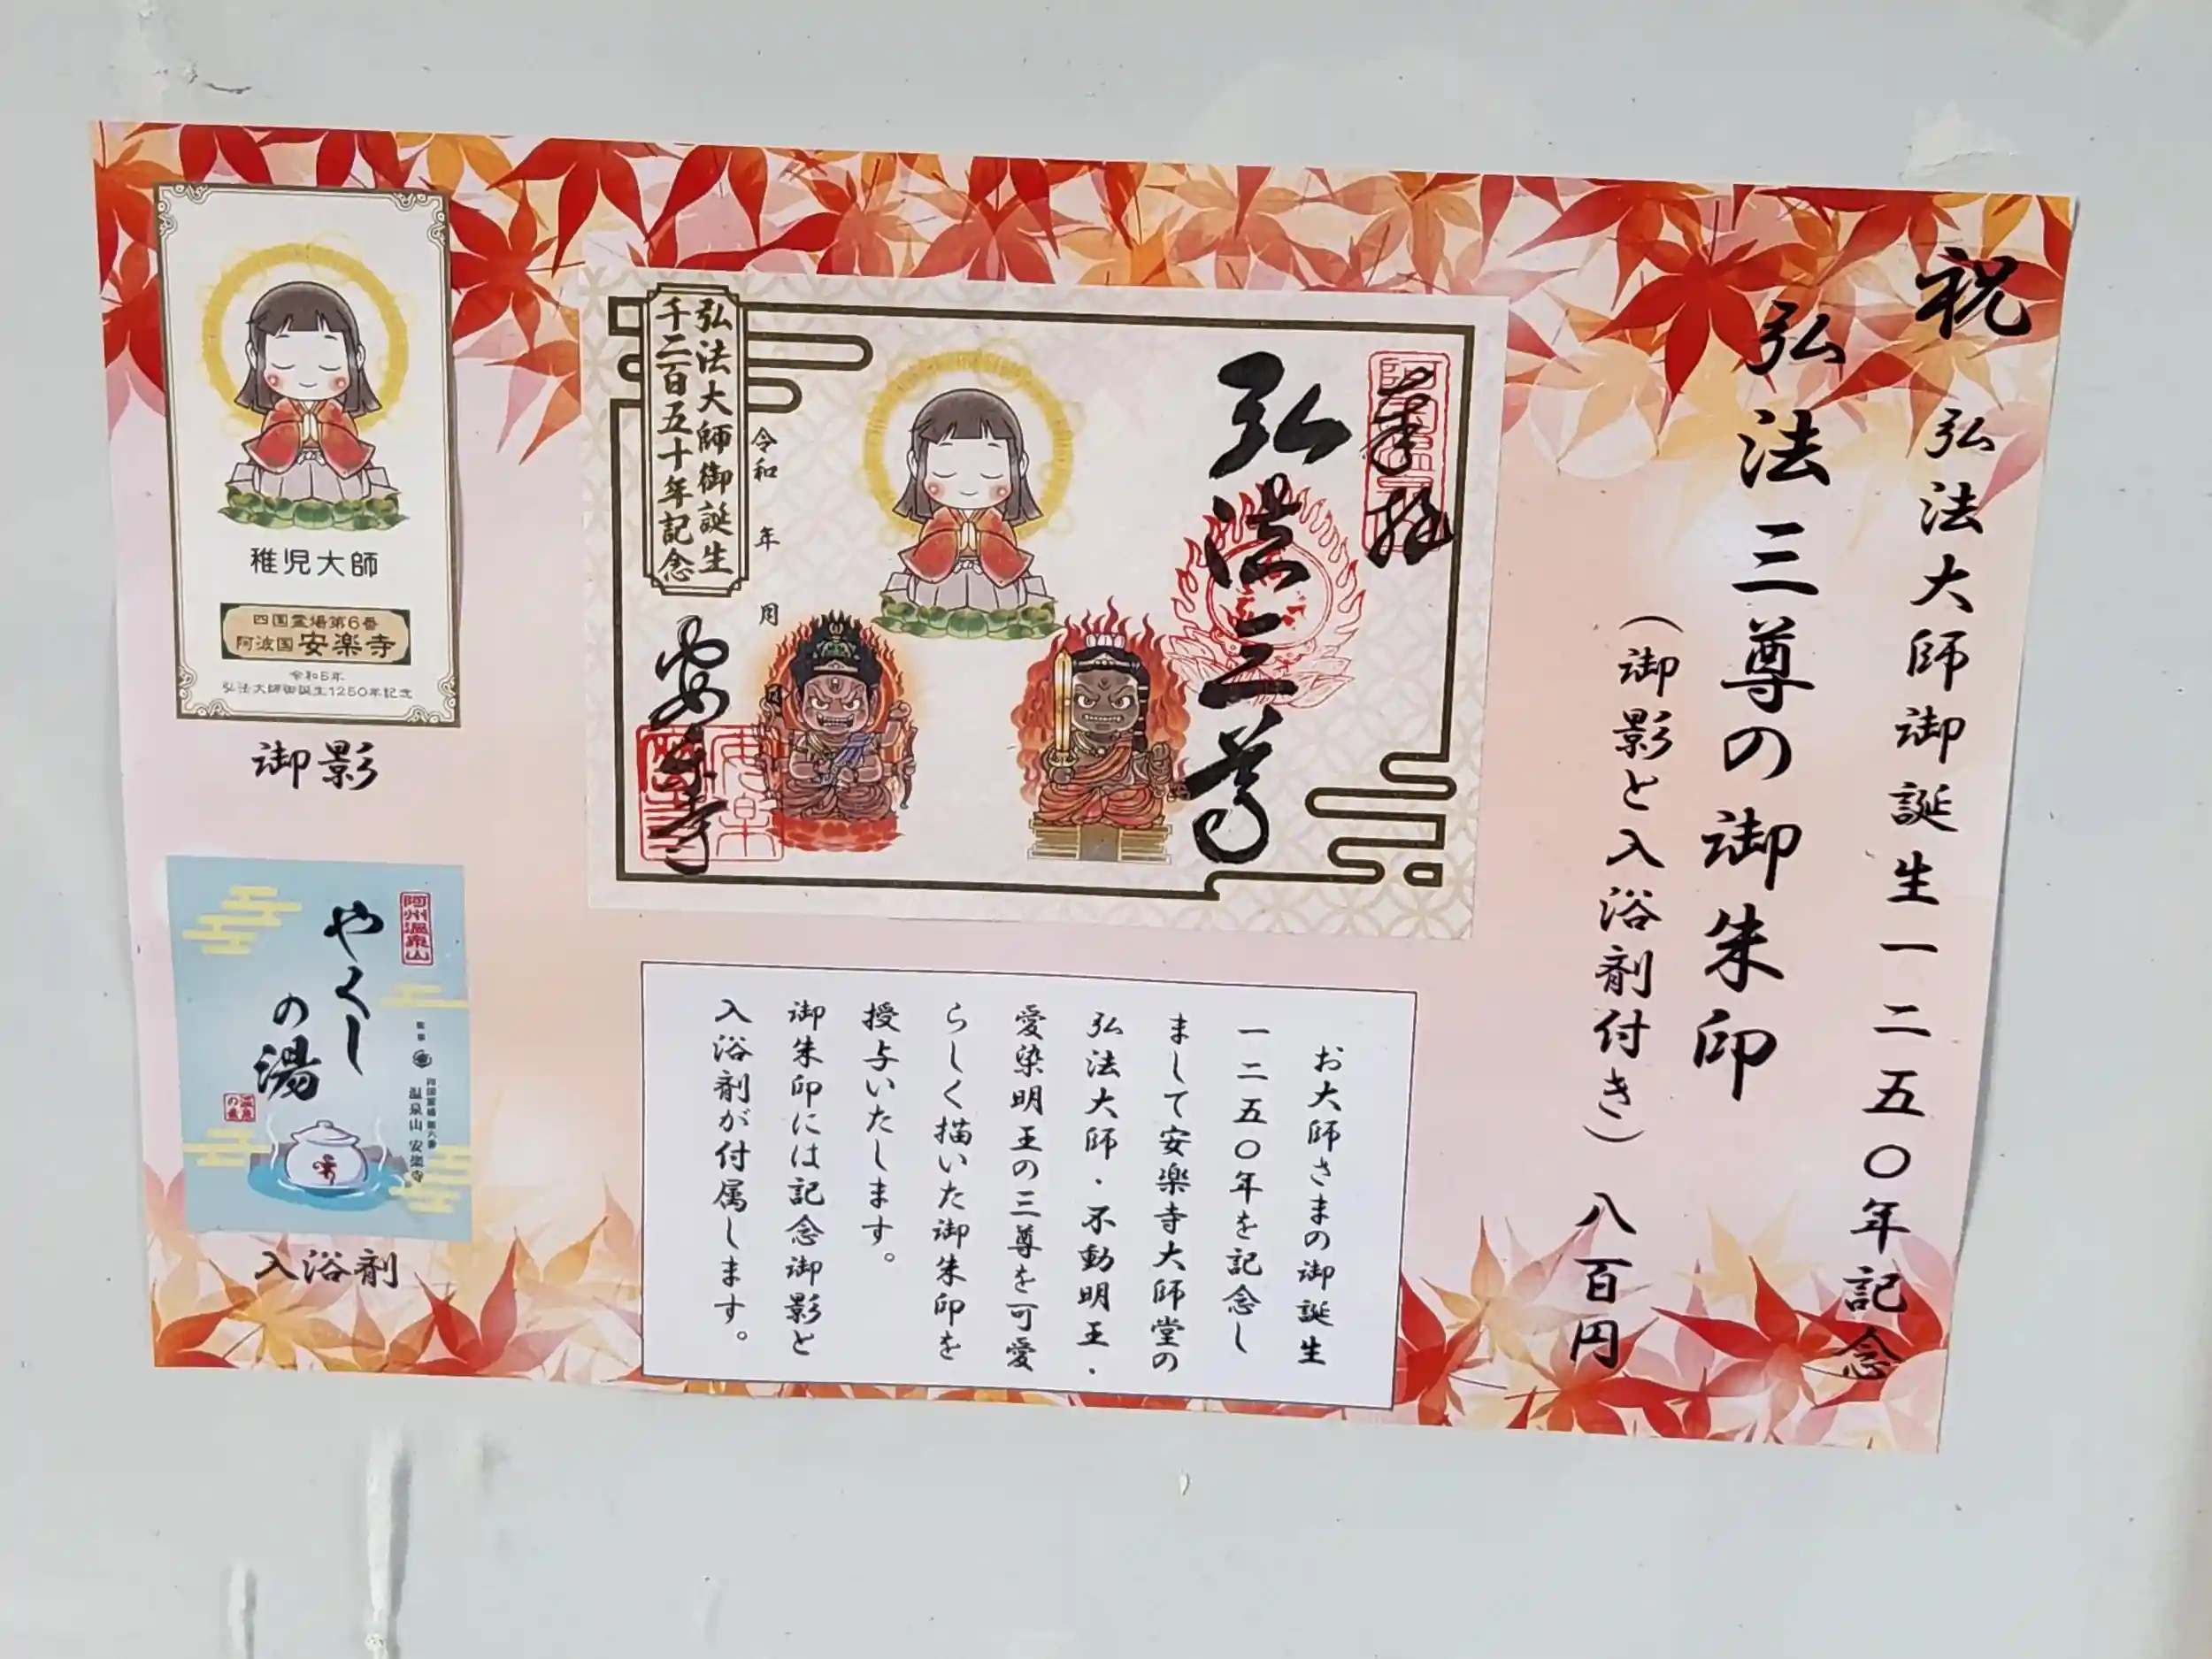 祝 弘法大師御誕生一二五〇年記念
弘法三尊の御朱印
（御影と入浴剤付き） 八百円
奉拝
弘法三尊
弘法大師御誕生
千二百五十年記念
令和 年 月 日
安楽寺
お大師さまの御誕生
一二五〇年を記念し
まして安楽寺大師堂の
弘法大師・不動明王・
愛染明王の三尊を可愛
らしく描いた御朱印を
授与いたします。
御朱印には記念御影と
入浴剤が付属します。
稚児大師
四国霊場第6番
阿波国 安楽寺
令和5年
弘法大師御誕生1250年記念
御影
阿州温泉山
やくし
の湯
四国霊場第六番
温泉山 安楽寺
入浴剤